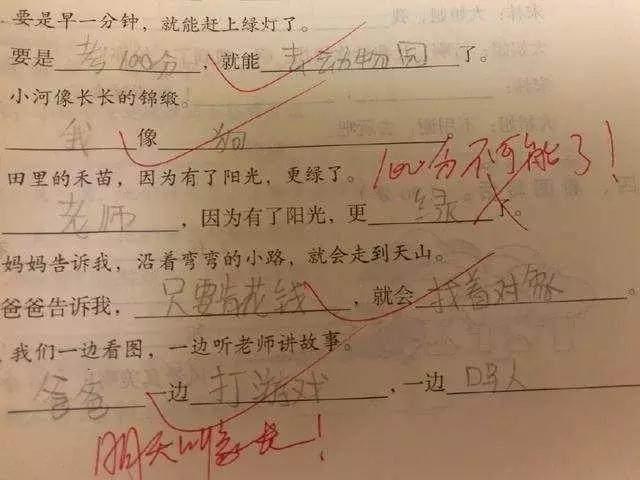 要是早一分钟，就能赶上绿灯了。
要是考100分，就能去动物园了。
小河像长长的锦缎。
我像狗
100分不可能了！
田里的禾苗，因为有了阳光，更绿了。
老师，因为有了阳光，更绿了。
妈妈告诉我，沿着弯弯的小路，就会走到天山。
爸爸告诉我，只要肯花钱，就会找着对象。
我们一边看图，一边听老师讲故事。
爸爸一边打游戏，一边骂人
明天叫家长！